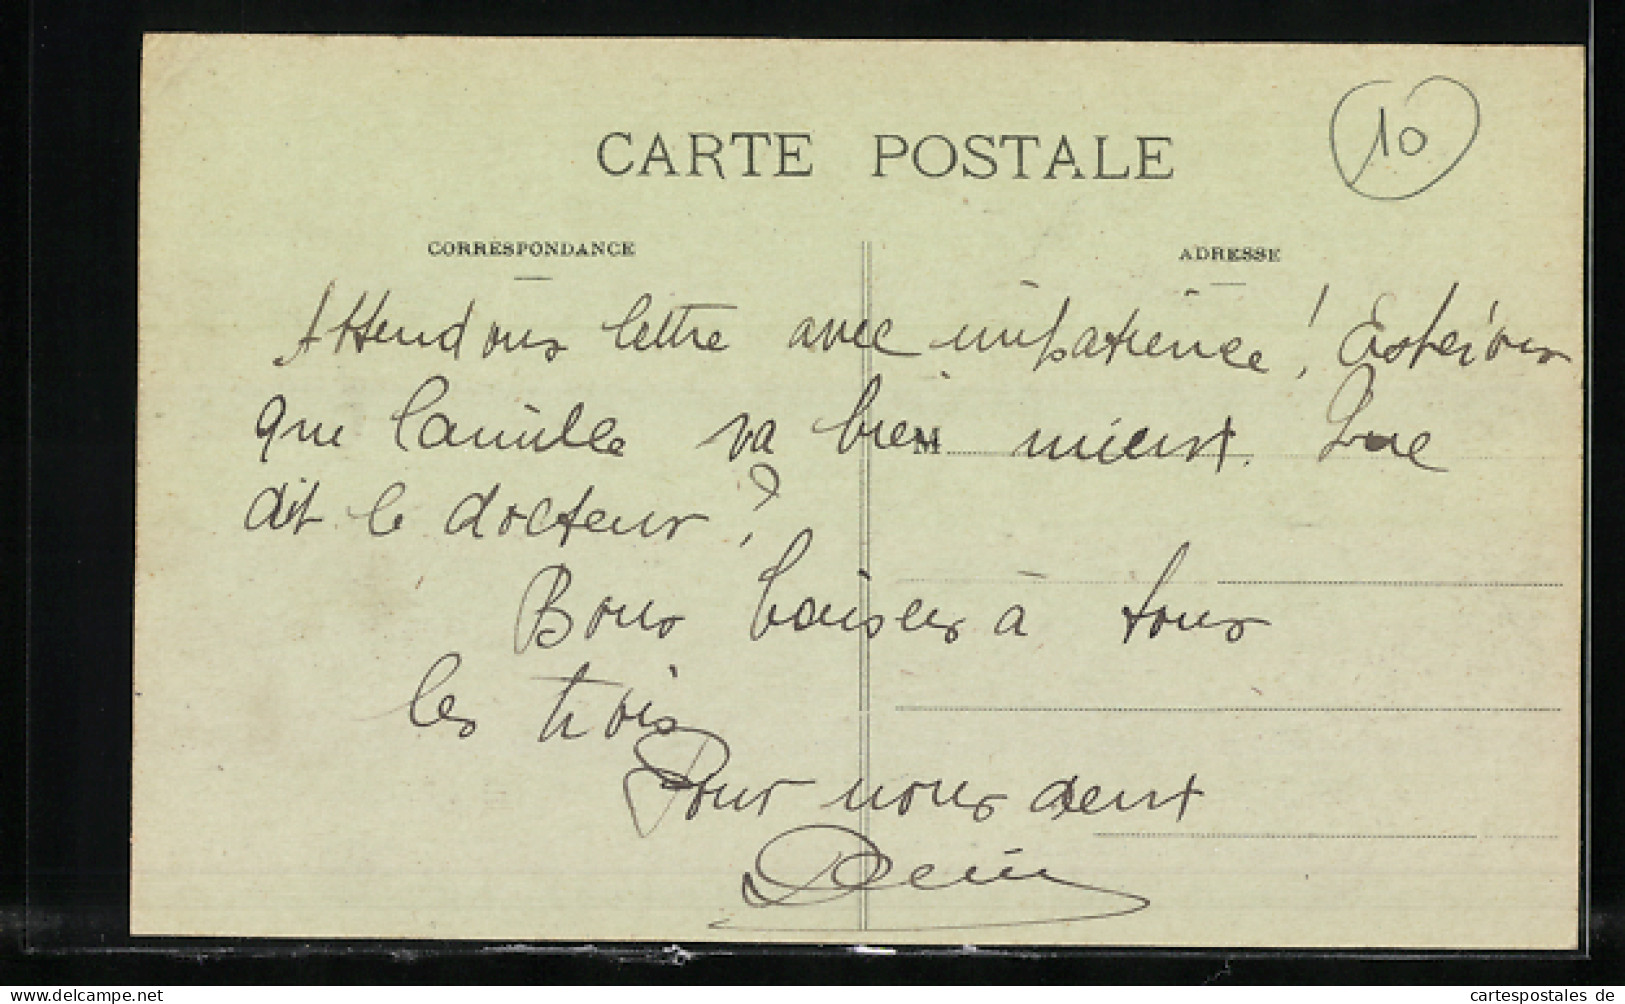 10
CARTE POSTALE
CORRESPONDANCE
ADRESSE
Attendons lettre avec impatience ! Espérons
que Camille va bien mieux. Que
M
dit le docteur ?
Bons baisers à tous
les trois
Pour nous deux
Denis
www.cartespostales.de
cartespostales de